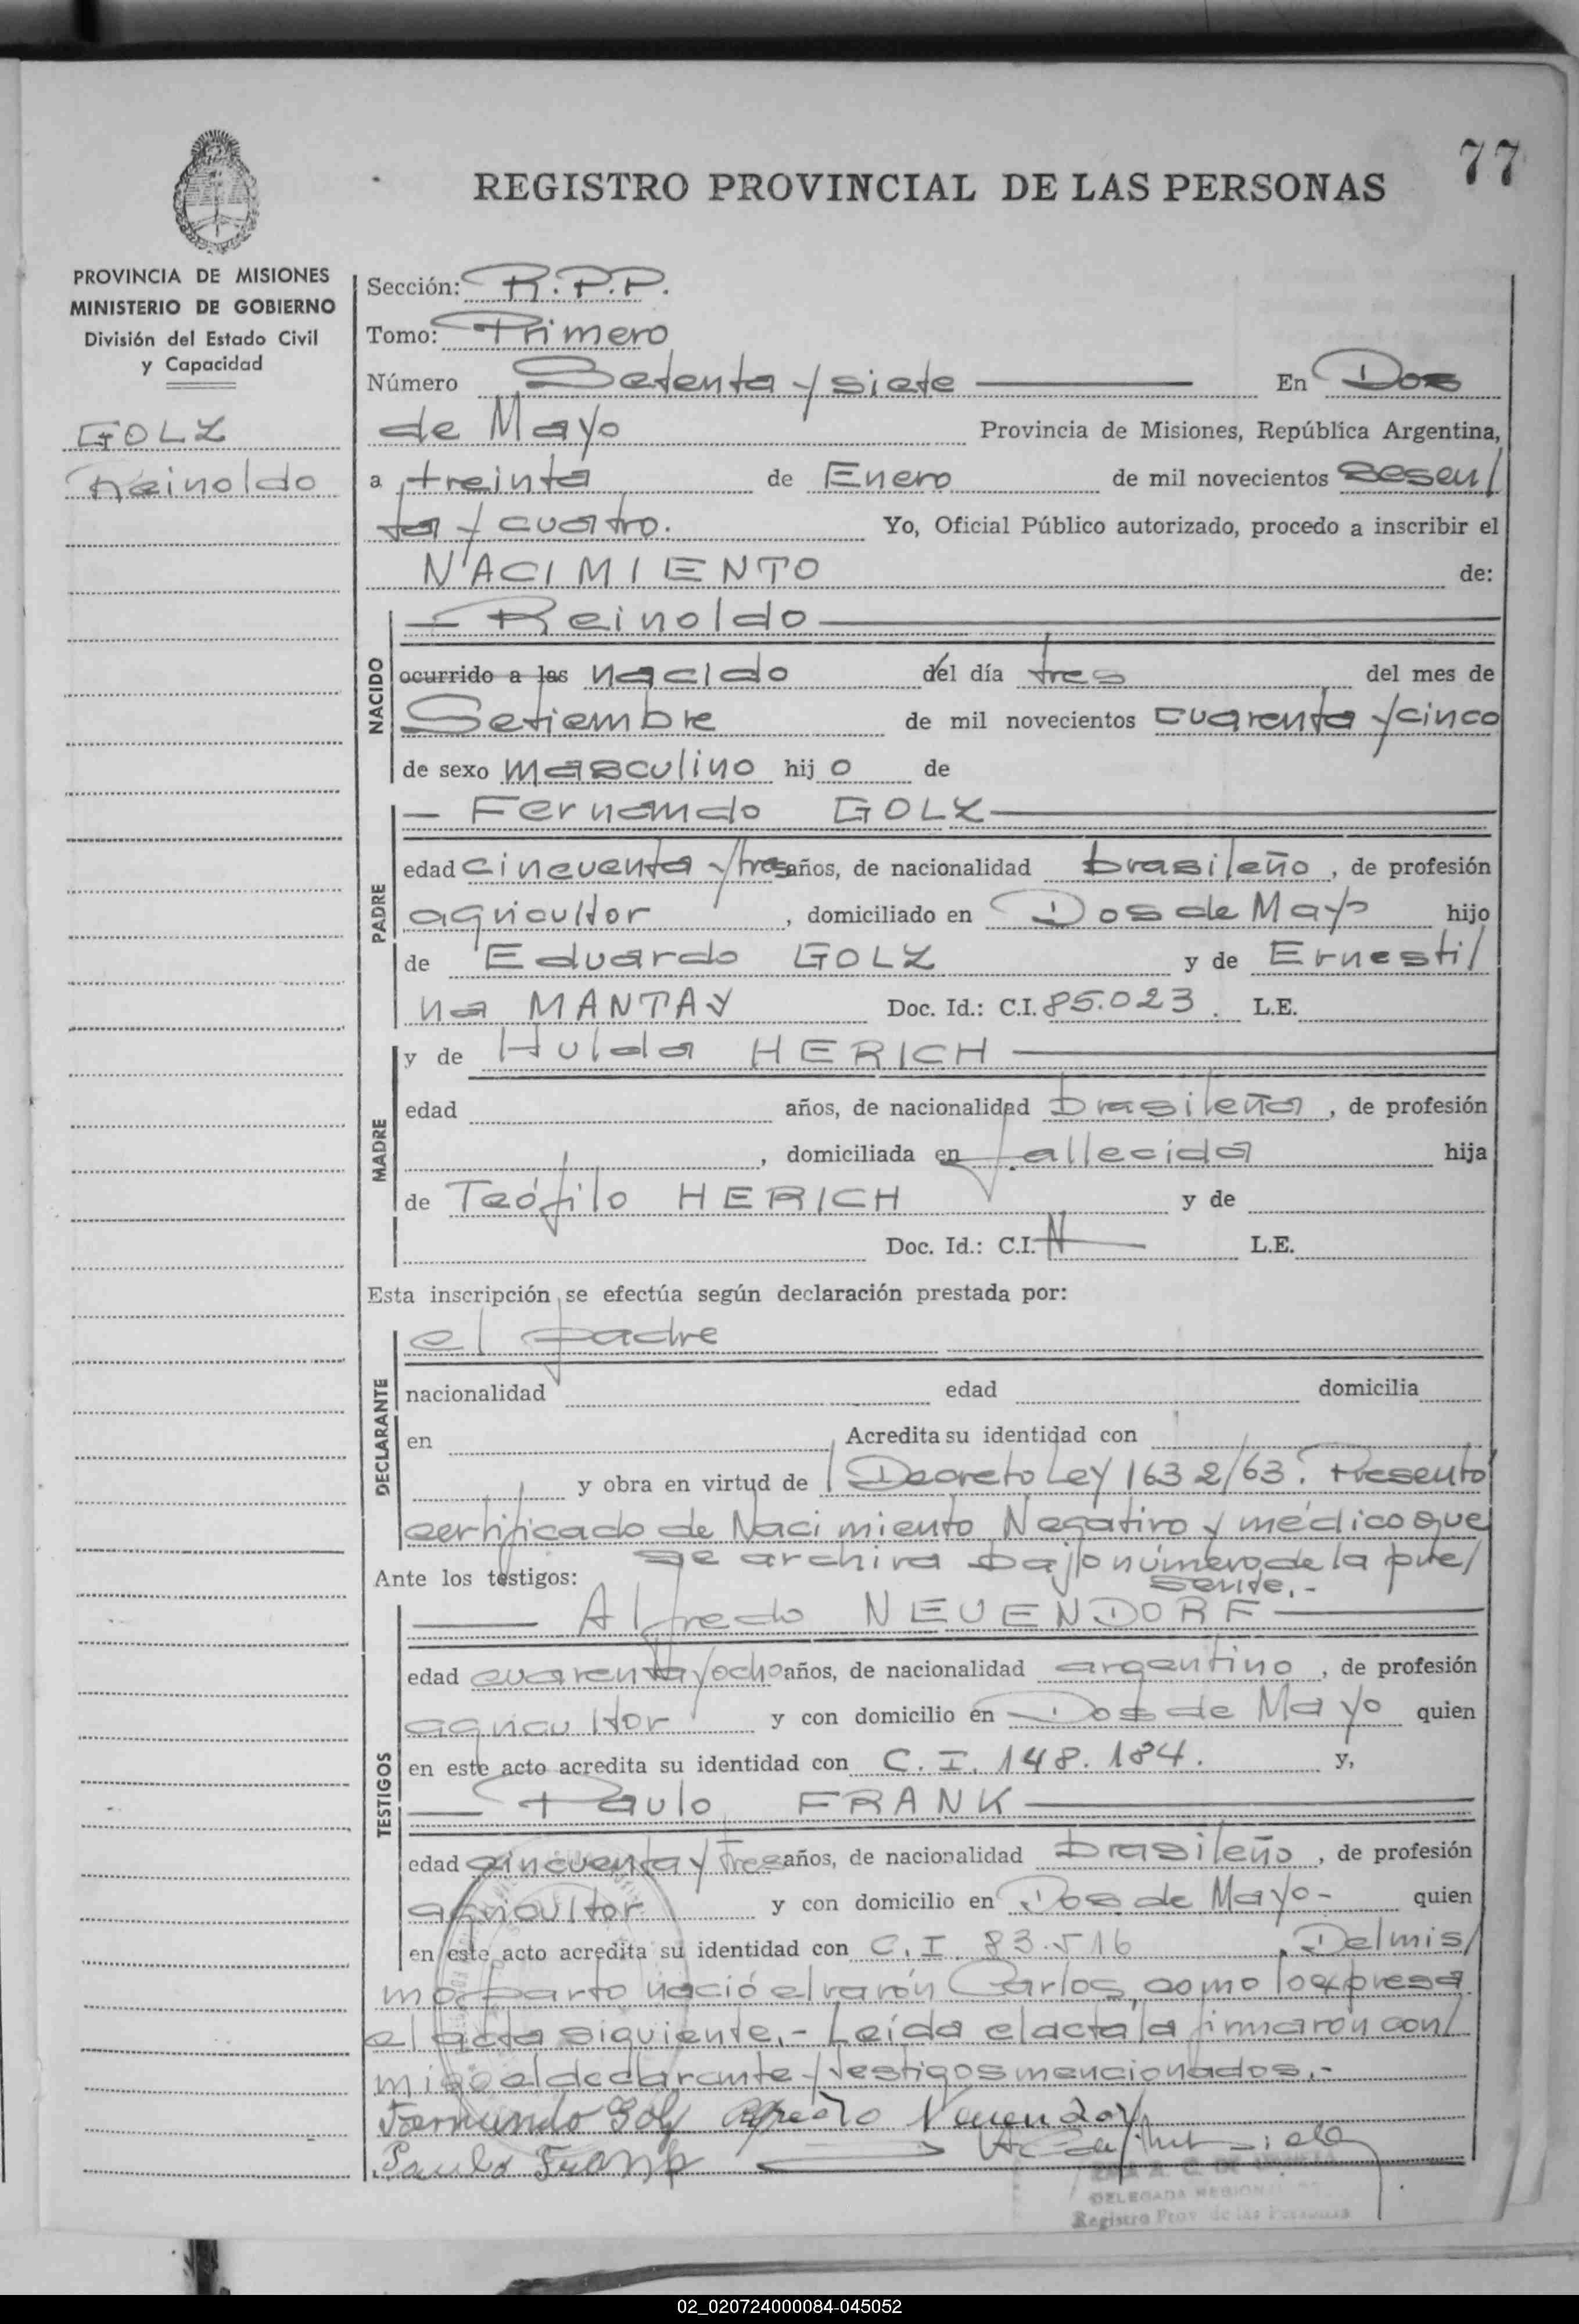 77
REGISTRO PROVINCIAL DE LAS PERSONAS
PROVINCIA DE MISIONES
MINISTERIO DE GOBIERNO
División del Estado Civil
y Capacidad
GOLZ
Reinoldo
Sección: R.P.P.
Tomo: Primero
Número Setenta y siete En Dos
de Mayo Provincia de Misiones, República Argentina,
a treinta de Enero de mil novecientos sesen/
ta y cuatro. Yo, Oficial Público autorizado, procedo a inscribir el
NACIMIENTO de:
NACIDO
— Reinoldo —
ocurrido a las nacido del día tres del mes de
Setiembre de mil novecientos cuarenta y cinco
de sexo masculino hijo de
PADRE
— Fernando GOLZ —
edad cincuenta y tres años, de nacionalidad brasileño, de profesión
agricultor, domiciliado en Dos de Mayo hijo
de Eduardo GOLZ y de Ernesti/
na MANTAY Doc. Id.: C.I. 85.023. L.E.
MADRE
y de Hulda HERICH —
edad años, de nacionalidad brasileña, de profesión
, domiciliada en fallecida hija
de Teófilo HERICH y de
Doc. Id.: C.I. N— L.E.
Esta inscripción se efectúa según declaración prestada por:
DECLARANTE
el padre
nacionalidad edad domicilia
en Acredita su identidad con
y obra en virtud de Decreto Ley 1632/63. Presentó
certificado de Nacimiento Negativo y médico que
se archiva bajo número de la pre/
sente.-
Ante los testigos:
TESTIGOS
— Alfredo NEUENDORF —
edad cuarenta y ocho años, de nacionalidad argentino, de profesión
agricultor y con domicilio en Dos de Mayo quien
en este acto acredita su identidad con C.I. 148.184. y,
— Paulo FRANK —
edad cincuenta y tres años, de nacionalidad brasileño, de profesión
agricultor y con domicilio en Dos de Mayo- quien
en este acto acredita su identidad con C.I. 83.516. Del mis/
mo parto nació el varón Carlos, como lo expresa
el acta siguiente.- Leída el acta la firmaron con/
migo el declarante y testigos mencionados.-
Fernando Golz Alfredo Neuendorf
Paulo Frank
DELEGADA REGIONAL
Registro Prov. de las Personas
02_020724000084-045052